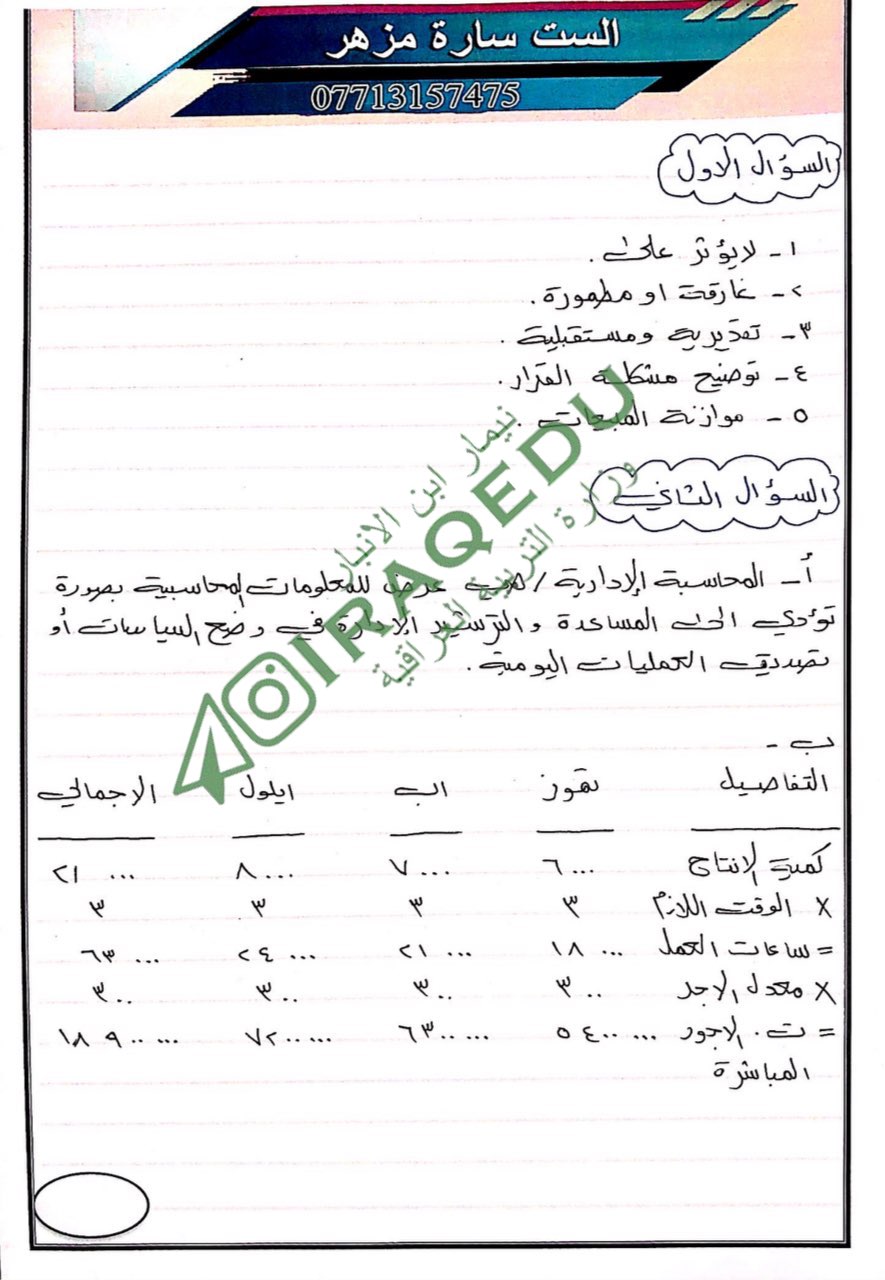 الست سارة مزهر
07713157475
السؤال الاول
١- لا يؤثر على .
٢- غارقة او مطمورة .
٣- تقديرية ومستقبلية .
٤- توضيح مشكلة القرار .
٥- موازنة المبيعات .
السؤال الثاني
أ- المحاسبة الإدارية / هي عرض للمعلومات المحاسبية بصورة
تؤدي الى المساعدة والترشيد الإدارة في وضع السياسات أو
العمليات اليومية .
ب -
التفاصيل تموز اب ايلول الاجمالي
كمية الانتاج ٦٠٠٠ ٧٠٠٠ ٨٠٠٠ ٢١٠٠٠
× الوقت اللازم ٣ ٣ ٣ ٣
= ساعات العمل ١٨٠٠٠ ٢١٠٠٠ ٢٤٠٠٠ ٦٣٠٠٠
× معدل الاجر ٣٠٠ ٣٠٠ ٣٠٠ ٣٠٠
= ت. الاجور ٥٤٠٠٠٠٠ ٦٣٠٠٠٠٠ ٧٢٠٠٠٠٠ ١٨٩٠٠٠٠٠
المباشرة
نيمار ابن الانبار
IRAQEDU
وزارة التربية العراقية